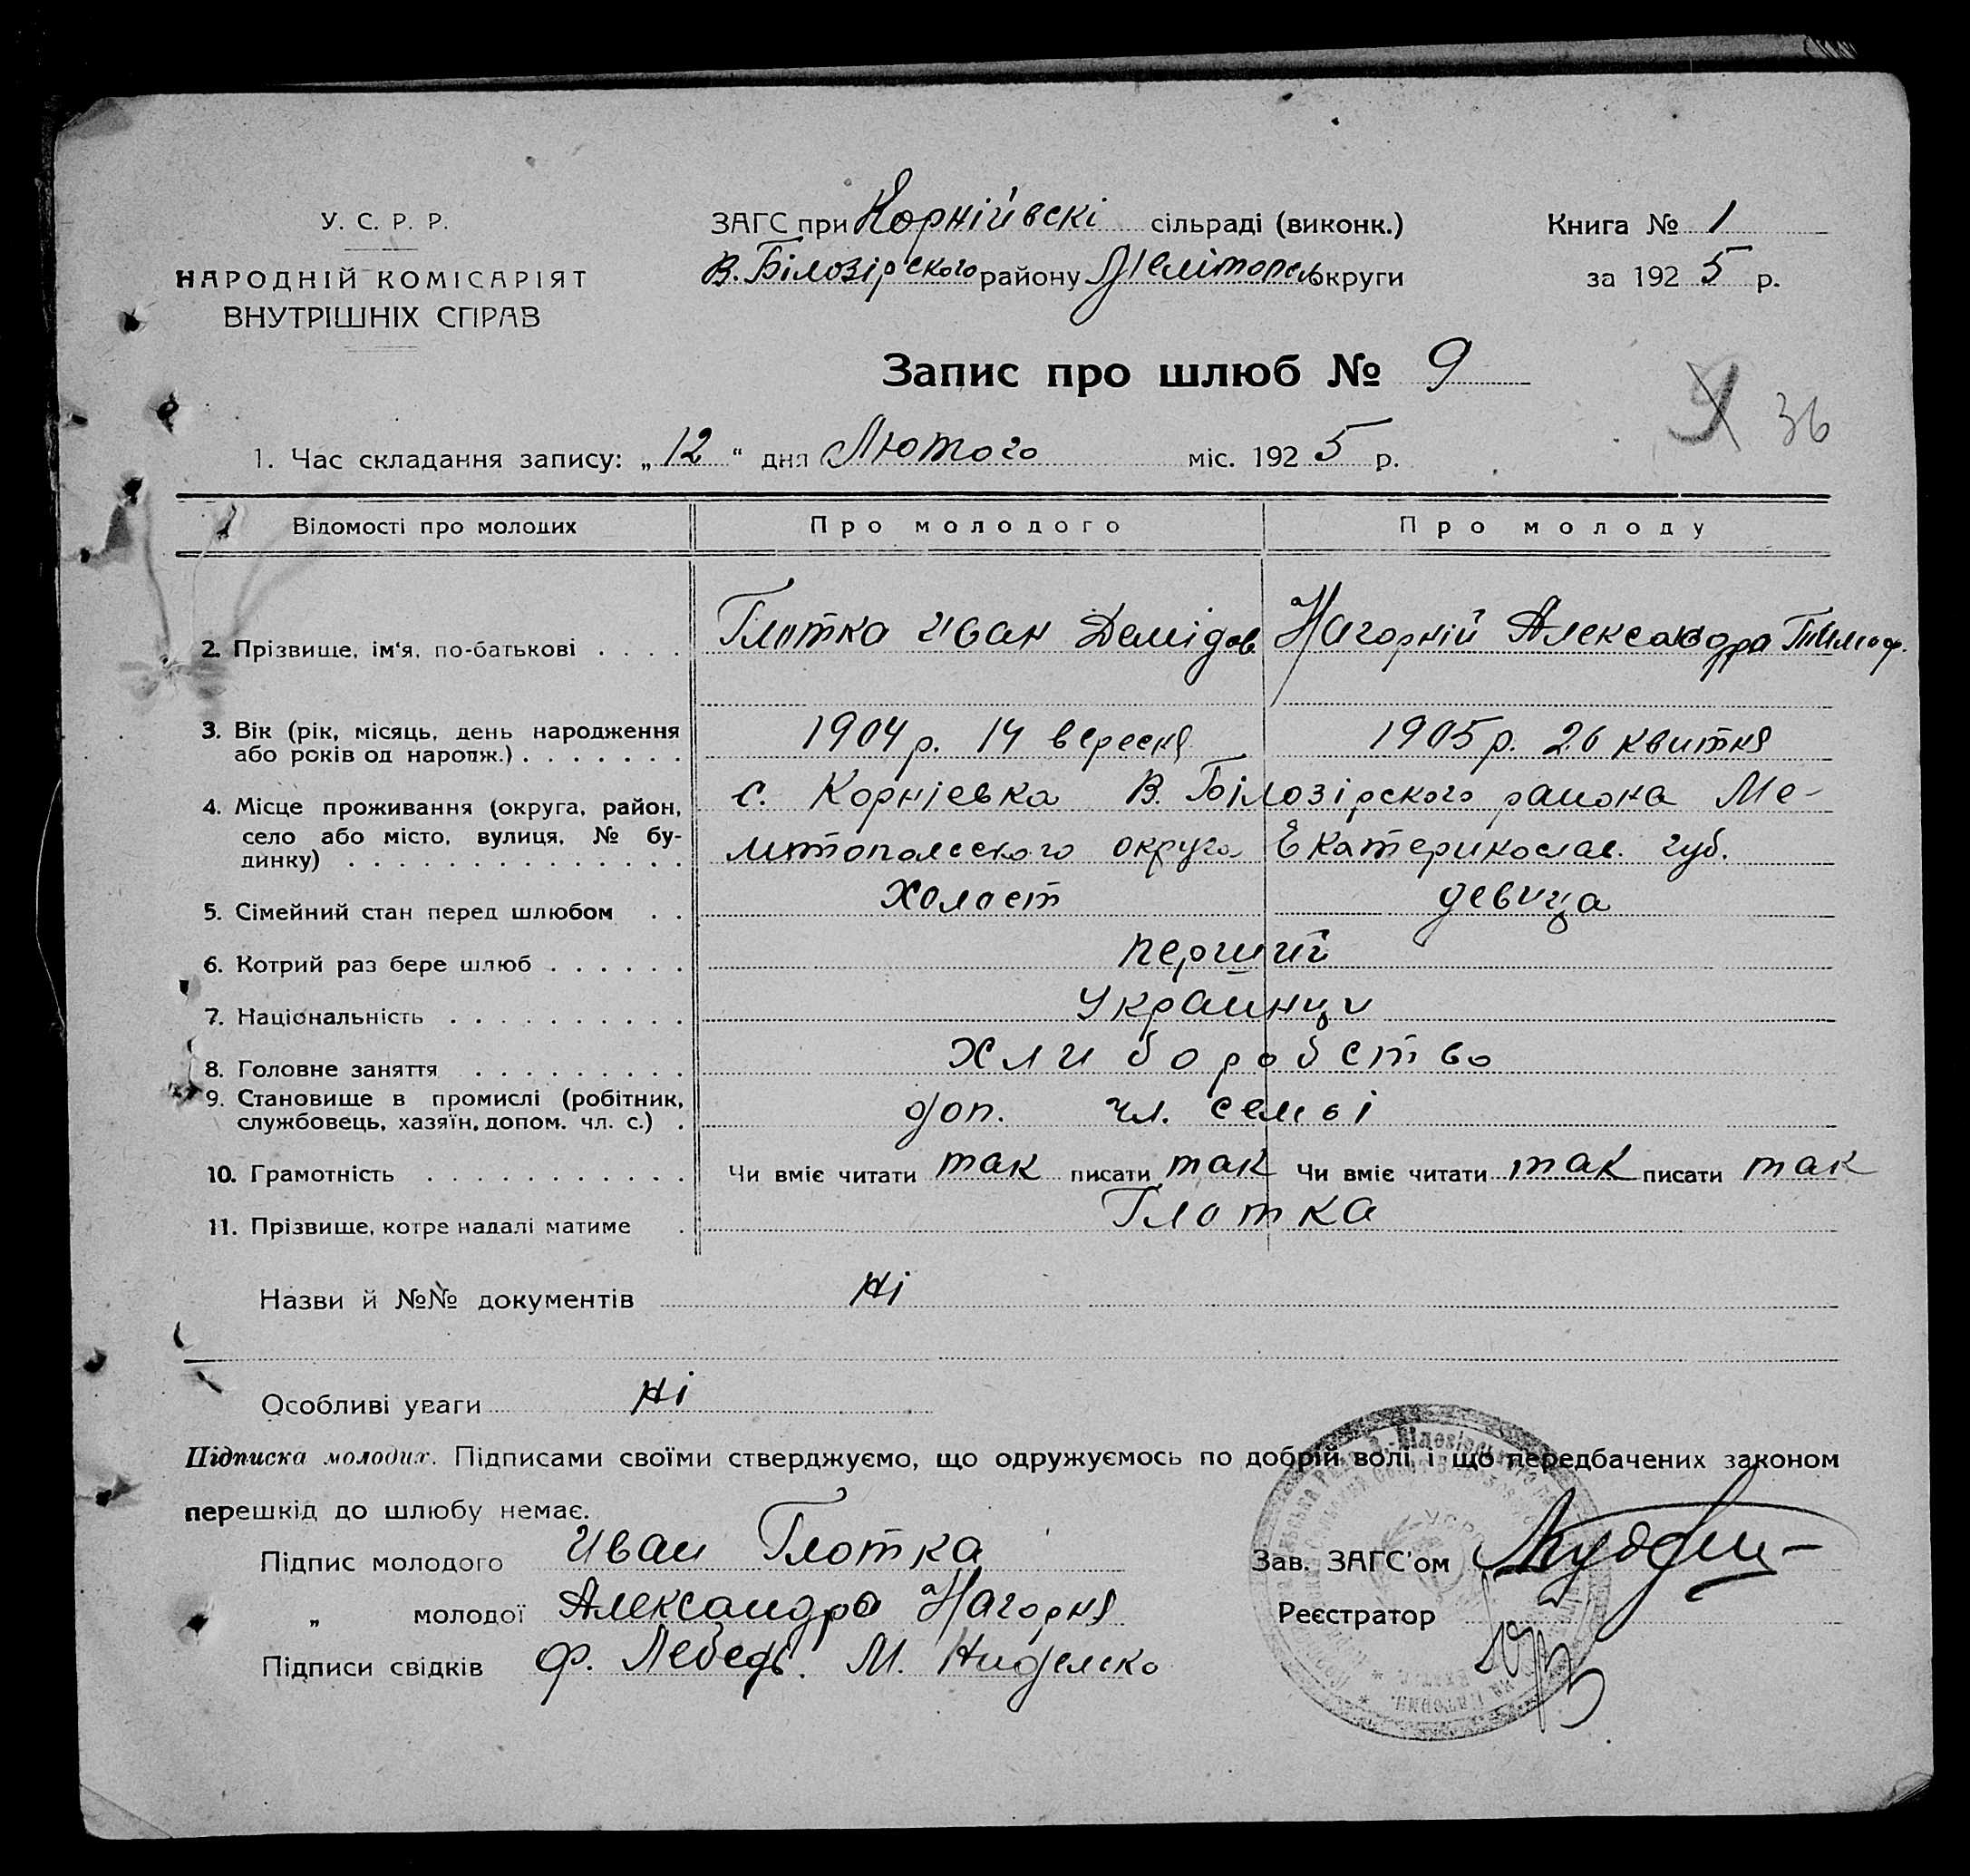 У. С. Р. Р.
НАРОДНІЙ КОМІСАРІЯТ
ВНУТРІШНІХ СПРАВ
ЗАГС при Корнійвскі сільраді (виконк.)
В. Білозірского району Мелітопсь округи
Книга № 1
за 1925 р.
Запис про шлюб № 9
9 36
1. Час складання запису: „12“ дня Лютого міс. 1925 р.
Відомості про молодих Про молодого Про молоду
2. Прізвище, ім‘я, по-батькові . . . . Глотка Иван Демідов. Нагорній Александра Тимоф.
3. Вік (рік, місяць, день народження
або років од народж.) . . . . . . . 1904 р. 14 вересня 1905 р. 26 квитня
4. Місце проживання (округа, район, с. Корніевка В. Білозірского раиона Ме-
село або місто, вулиця, № бу-
динку) . . . . . . . . . . . . . . литопольского округа Екатеринослав. губ.
5. Сімейний стан перед шлюбом . . Холост девица
6. Котрий раз бере шлюб . . . . . . перший
7. Національність . . . . . . . . . . Украинци
8. Головне заняття . . . . . . . . . Хлиборобство
9. Становище в промислі (робітник,
службовець, хазяїн, допом. чл. с.) . доп. чл. семьі
10. Грамотність . . . . . . . . . . . Чи вміє читати так писати так Чи вміє читати так писати так
11. Прізвище, котре надалі матиме . Глотка
Назви й №№ документів Ні
Особливі уваги Ні
Підписка молодих. Підписами своїми стверджуємо, що одружуємось по добрій волі і що передбачених законом
перешкід до шлюбу немає.
Підпис молодого Иван Глотка
„ молодої Александра Нагорня
Підписи свідків Ф. Лебедь. М.
Зав. ЗАГС’ом
Реєстратор
УСРР